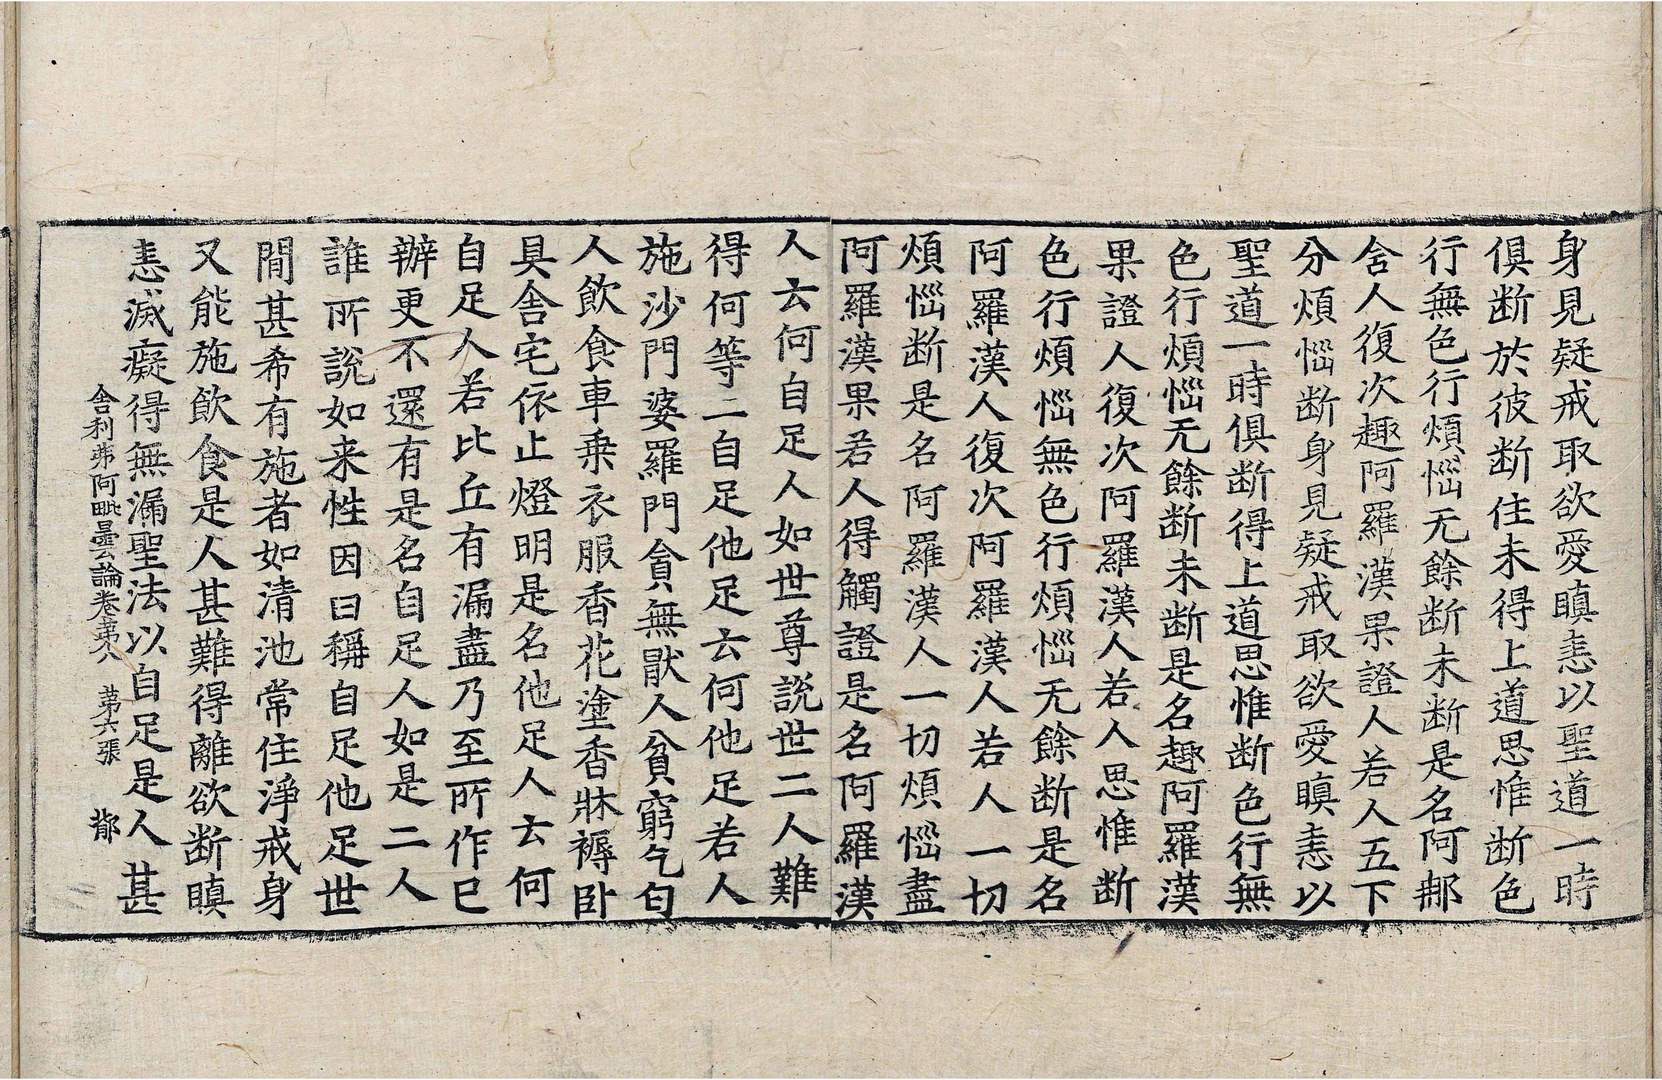 身見疑戒取欲愛瞋恚以聖道一時
俱断於彼断住未得上道思惟断色
行無色行煩惱无餘断未断是名阿那
舍人復次趣阿羅漢果證人若人五下
分煩惱断身見疑戒取欲愛瞋恚以
聖道一時俱断得上道思惟断色行無
色行煩惱无餘断未断是名趣阿羅漢
果證人復次阿羅漢人若人思惟断
色行煩惱無色行煩惱无餘断是名
阿羅漢人復次阿羅漢人若人一切
煩惱断是名阿羅漢人一切煩惱盡
阿羅漢果若人得觸證是名阿羅漢
人云何自足人如世尊說世二人難
得何等二自足他足云何他足若人
施沙門婆羅門貪無猒人貧窮乞匄
人飲食車乗衣服香花塗香牀褥卧
具舎宅依止燈明是名他足人云何
自足人若比丘有漏盡乃至所作已
辦更不還有是名自足人如是二人
誰所說如来性因曰稱自足他足世
間甚希有施者如清池常住淨戒身
又能施飲食是人甚難得離欲断瞋
恚滅癡得無漏聖法以自足是人甚
舎利弗阿毗曇論卷苐八 苐六張 鄁